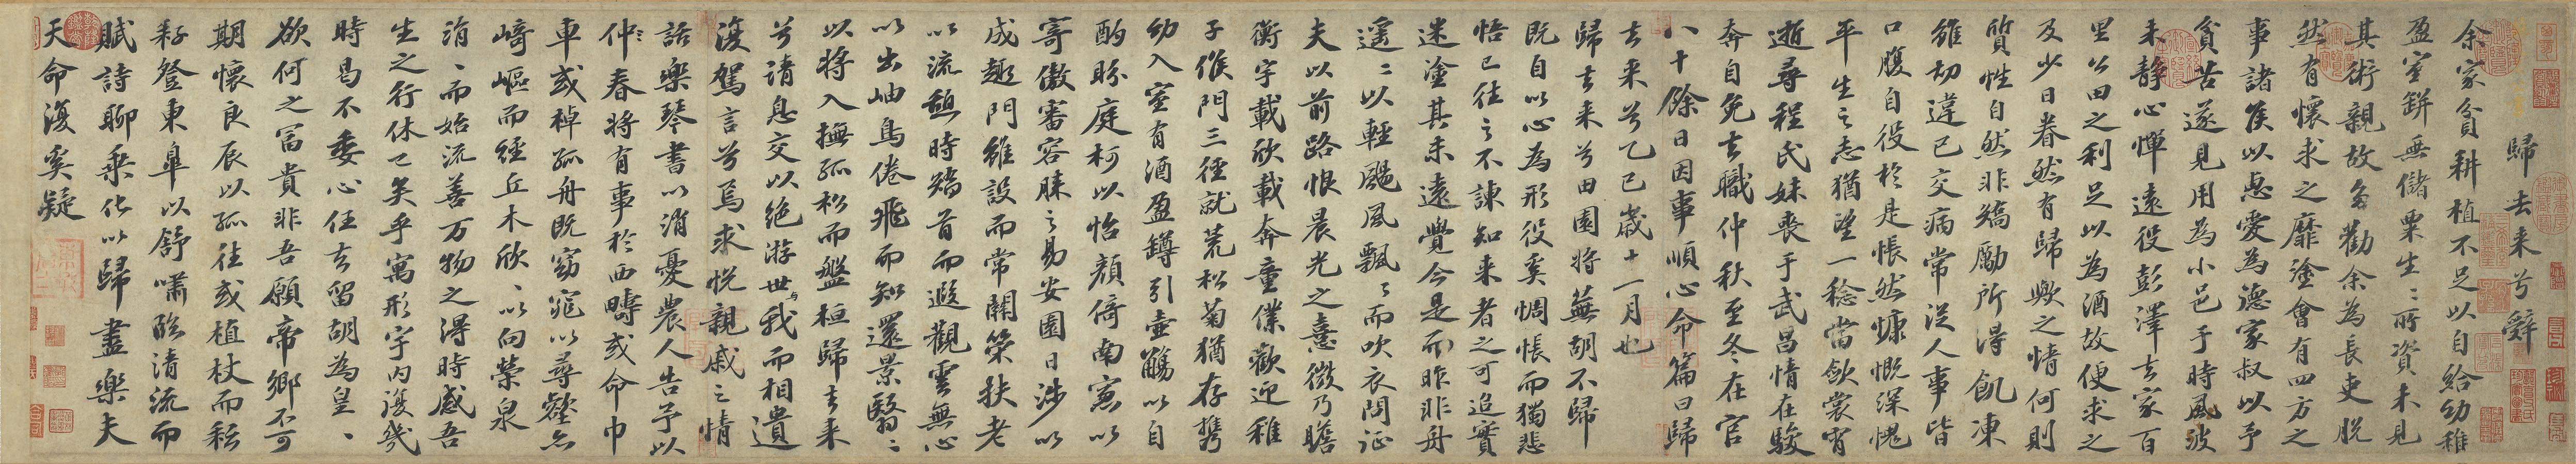 歸去来兮辭
余家貧耕植不足以自給幼稚
盈室缾無儲粟生〻所資未見
其術親故多勸余為長吏脫
然有懷求之靡塗會有四方之
事諸侯以惠愛為德家叔以予
貧苦遂見用為小邑于時風波
未靜心憚遠役彭澤去家百
里公田之利足以為酒故便求之
及少日眷然有歸歟之情何則
質性自然非矯勵所得飢凍
雖切違已交病常從人事皆
口腹自役於是悵然慷慨深愧
平生之志猶望一稔當斂裳宵
逝尋程氏妹喪于武昌情在駿
奔自免去職仲秋至冬在官
八十餘日因事順心命篇曰歸
去来兮乙巳歲十一月也
歸去来兮田園將蕪胡不歸
既自以心為形役奚惆悵而獨悲
悟已往之不諫知来者之可追實
迷塗其未遠覺今是而昨非舟
遥〻以輕颺風飄〻而吹衣問征
夫以前路恨晨光之熹微乃瞻
衡宇載欣載奔童僕歡迎稚
子候門三徑就荒松菊猶存携
幼入室有酒盈罇引壺觴以自
酌眄庭柯以怡顏倚南窓以
寄傲審容膝之易安園日涉以
成趣門雖設而常關策扶老
以流憩時矯首而遐觀雲無心
以出岫鳥倦飛而知還景翳〻
以將入撫孤松而盤桓歸去来
兮請息交以絶游世與我而相遺
復駕言兮焉求悅親戚之情
話樂琴書以消憂農人告予以
仲春將有事於西疇或命巾
車或棹孤舟既窈窕以尋壑亦
崎嶇而經丘木欣〻以向榮泉
涓〻而始流善万物之得時感吾
生之行休已矣乎寓形宇内復幾
時曷不委心任去留胡為皇〻
欲何之富貴非吾願帝鄉不可
期懷良辰以孤往或植杖而耘
耔登東臯以舒嘯臨清流而
賦詩聊乘化以歸盡樂夫
天命復奚疑